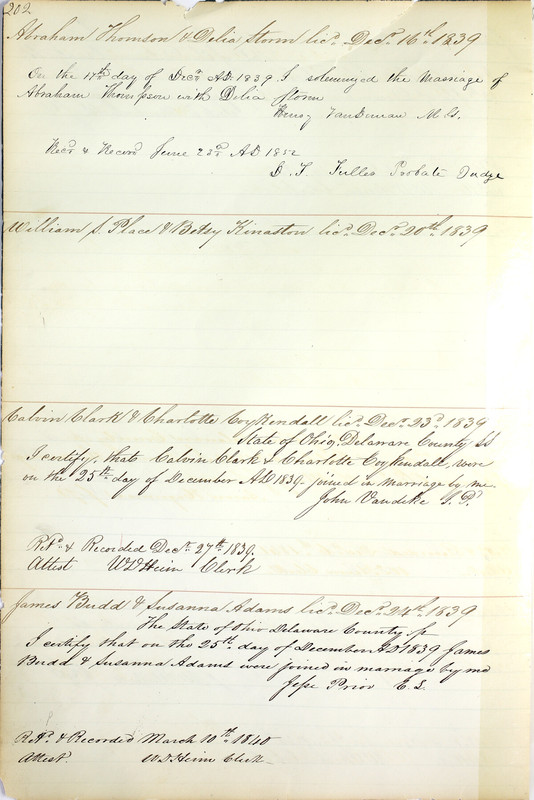 202
Abraham Thomson & Delia Storm licd. Decr. 16th. 1839
On the 17th day of Decr AD. 1839. I solemnyed the Massiage of
Abraham Thompson with Delia Storm
Henry VanDeman M. G.
Recd & Record June 23rd AD. 1852
D. T. Fuller Probate Judge
William S. Place & Betsy Kinaston licd. Decr. 20th. 1839
Calvin Clark & Charlotte Coykendall licd. Decr. 23d. 1839
State of Ohio, Delaware County SS
I certify, that Calvin Clark & Charlotte Coykendall, were
on the 25th day of December AD 1839 joined in marriage by me
John Vandike J. P.
Retd. & Recorded Decr. 27th 1839.
Attest W D Heim Clerk
James Budd & Susanna Adams licd. Decr. 24th. 1839
The State of Ohio Delaware County ss
I certify that on the 25th day of December AD 1839 James
Budd & Susanna Adams were joined in marriage by me
Jesse Prior E. L.
Retd. & Recorded March 10th 1840
Attest. W D Heim Clerk